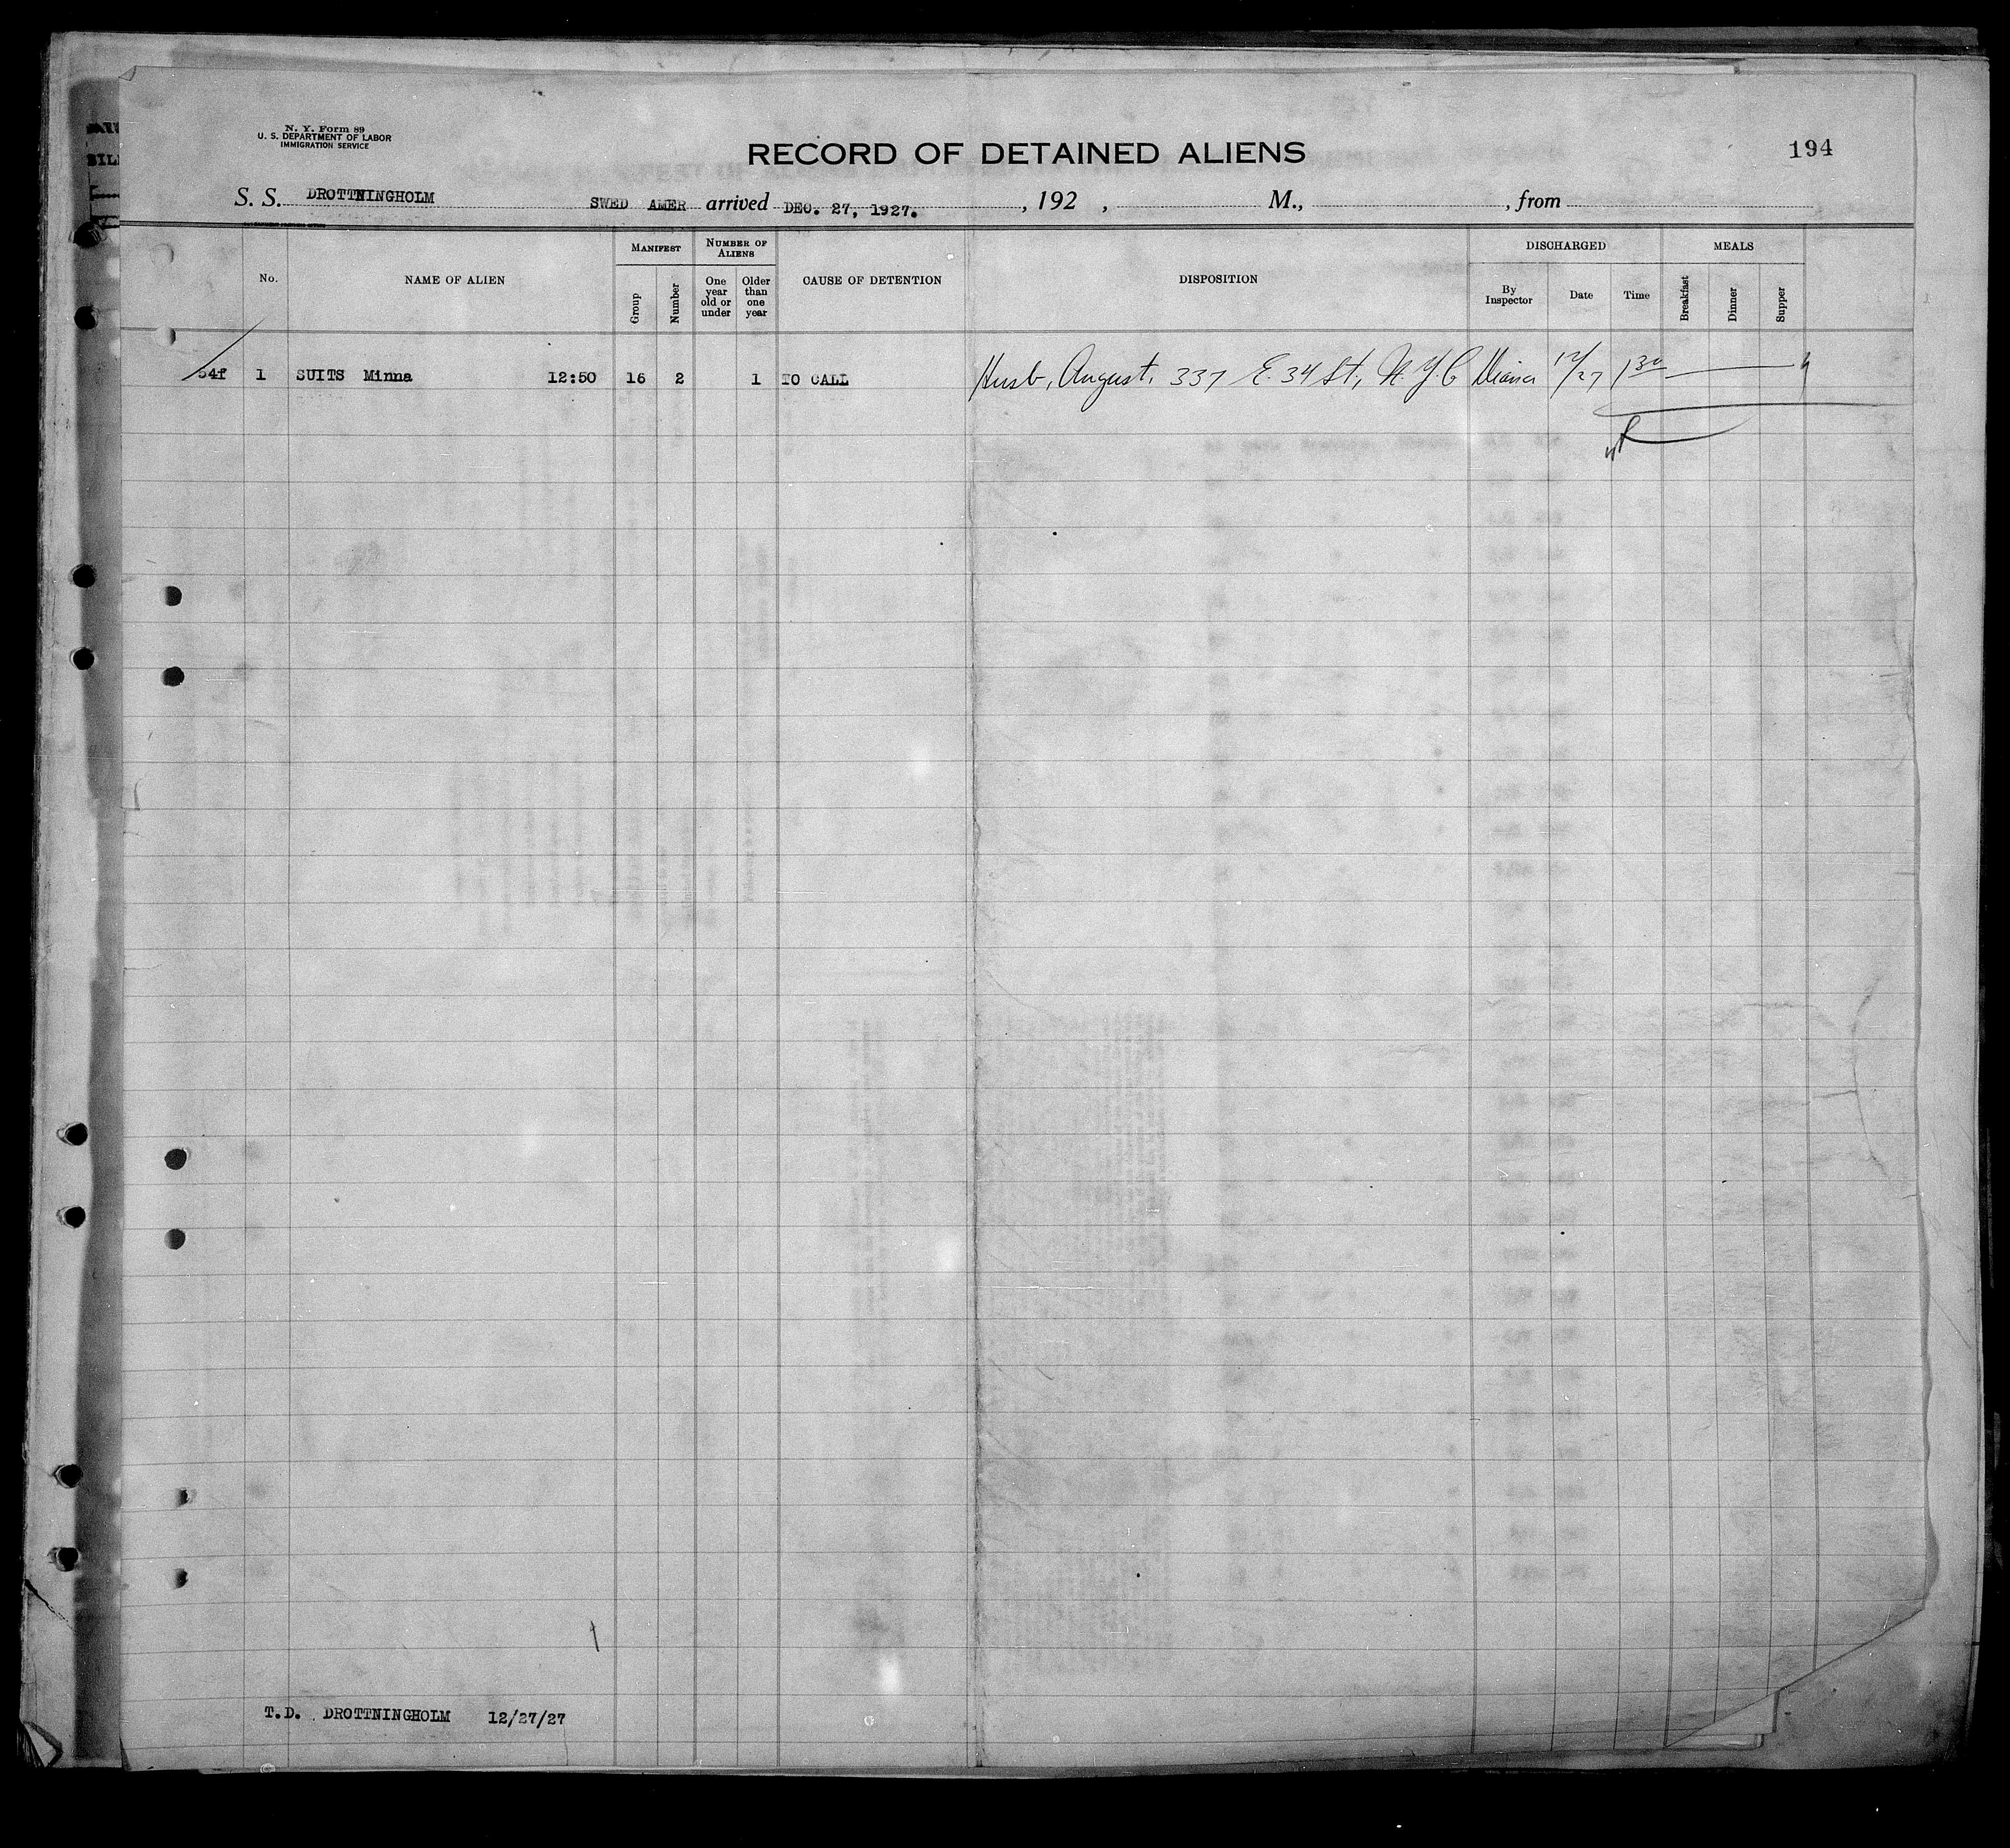 N. Y. Form 89
U. S. DEPARTMENT OF LABOR
IMMIGRATION SERVICE
RECORD OF DETAINED ALIENS
194
S. S. DROTTNINGHOLM SWED AMER arrived DEC. 27, 1927. , 192 , M., , from
No.
NAME OF ALIEN
MANIFEST
Group
Number
NUMBER OF ALIENS
One year old or under
Older than one year
CAUSE OF DETENTION
DISPOSITION
DISCHARGED
By Inspector
Date
Time
MEALS
Breakfast
Dinner
Supper
54f 1 SUITS Minna 12:50 16 2 1 TO CALL Husb, August, 337 E. 34 St, N.Y.C 12/27 1 30
T.D. DROTTNINGHOLM 12/27/27